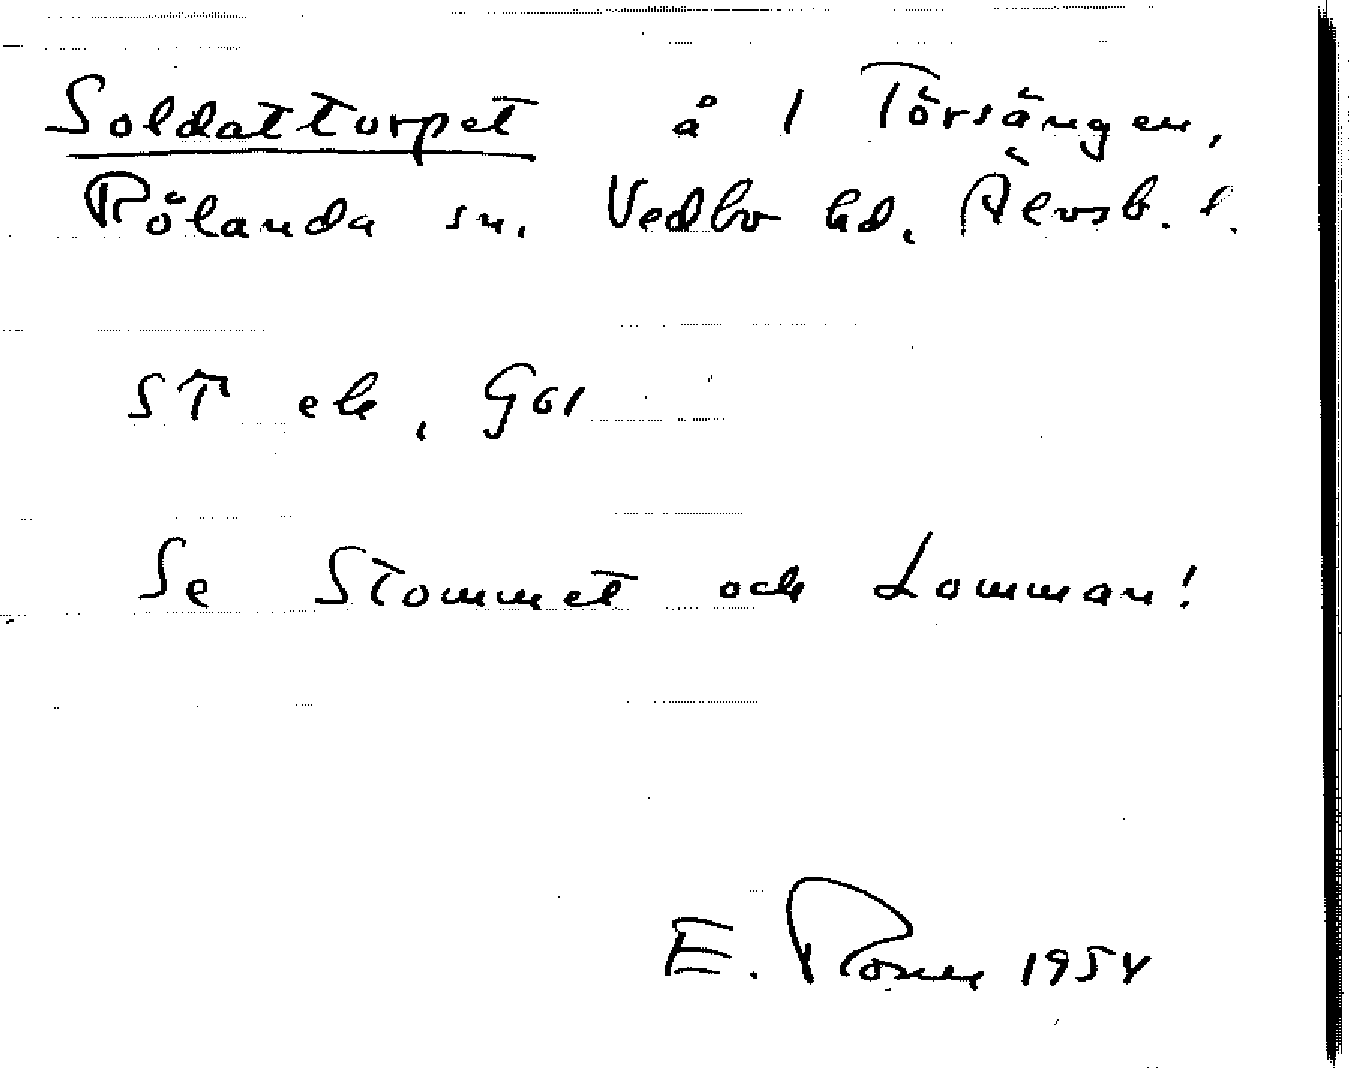 Soldattorpet å 1 Törsängen,
Rölanda sn. Vedbo hd. Älvsb. l.
ST ek, G61
Se Stommet och Lomman!
E. Rosell 1954